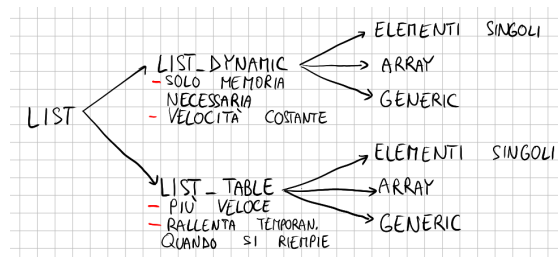 LIST
LIST_DYNAMIC
- SOLO MEMORIA
NECESSARIA
- VELOCITÀ COSTANTE
ELEMENTI SINGOLI
ARRAY
GENERIC
LIST_TABLE
- PIÙ VELOCE
- RALLENTA TEMPORAN.
QUANDO SI RIEMPIE
ELEMENTI SINGOLI
ARRAY
GENERIC